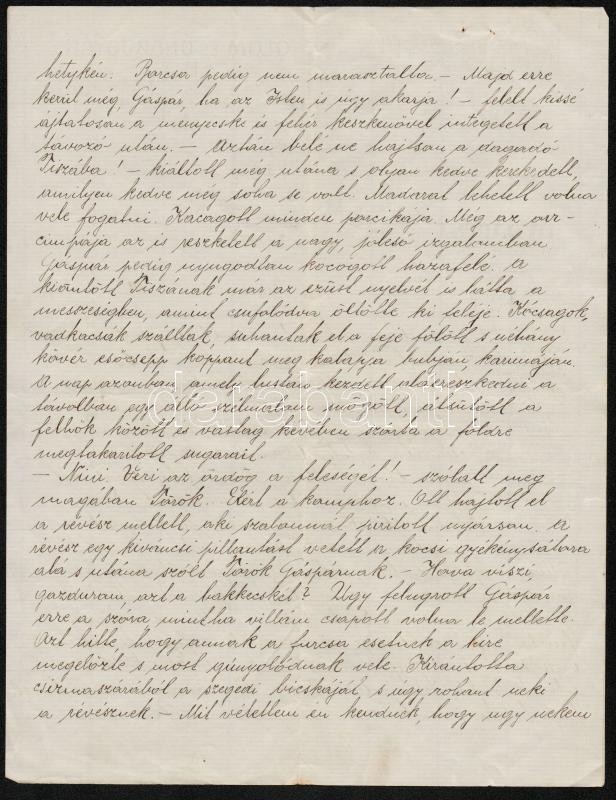 hetykén. Barcsa pedig nem marasztalta. – Majd erre
kerül még, Gáspár, ha az Isten is úgy akarja! – felelt kissé
ájtatosan a menyecske is fehér keszkenővel integetett a
távozó után. – Aztán bele ne hajtson a dagadó
Tiszába! – kiáltott még utána s olyan kedve kerekedett,
amilyen kedve még soha se volt. Madarat lehetett volna
vele fogatni. Kacagott minden porcikája. Még az orr-
cimpája az is reszketett a nagy, jóleső izgalomban.
Gáspár pedig nyugodtan kocogott hazafelé. A
kiöntött Tiszának már az ezüst nyelvét is látta a
messzeségben, amint csufolódva öltötte ki feléje. Kócsagok,
vadkacsák szálltak, suhantak el a feje fölött s néhány
kövér esőcsepp koppant meg kalapja bubján, karimáján.
A nap azonban, amely lustán kezdett aláereszkedni a
távolban egy álló szélmalom mögött, átsütött a
felhők között és vastag kévében szórta a földre
megtakarított sugarait.
– Nini. Veri az ördög a feleségét! – szólalt meg
magában Török. Elért a komphoz. Ott hajtott el
a révész mellett, aki szalonnát pirított nyárson. A
révész egy kiváncsi pillantást vetett a kocsi gyékénysátora
alá s utána szólt Török Gáspárnak. – Hova viszi,
gazduram, azt a bakkecskét? Úgy felugrott Gáspár
erre a szóra, mintha villám csapott volna le mellette.
Azt hitte, hogy annak a furcsa esetnek a híre
megelőzte s most gúnyolódnak vele. Kirántotta
csizmaszárából a szegedi bicskáját, s úgy rohant neki
a révésznek. – Mit vétettem én kendnek, hogy ugy nekem
darabanth